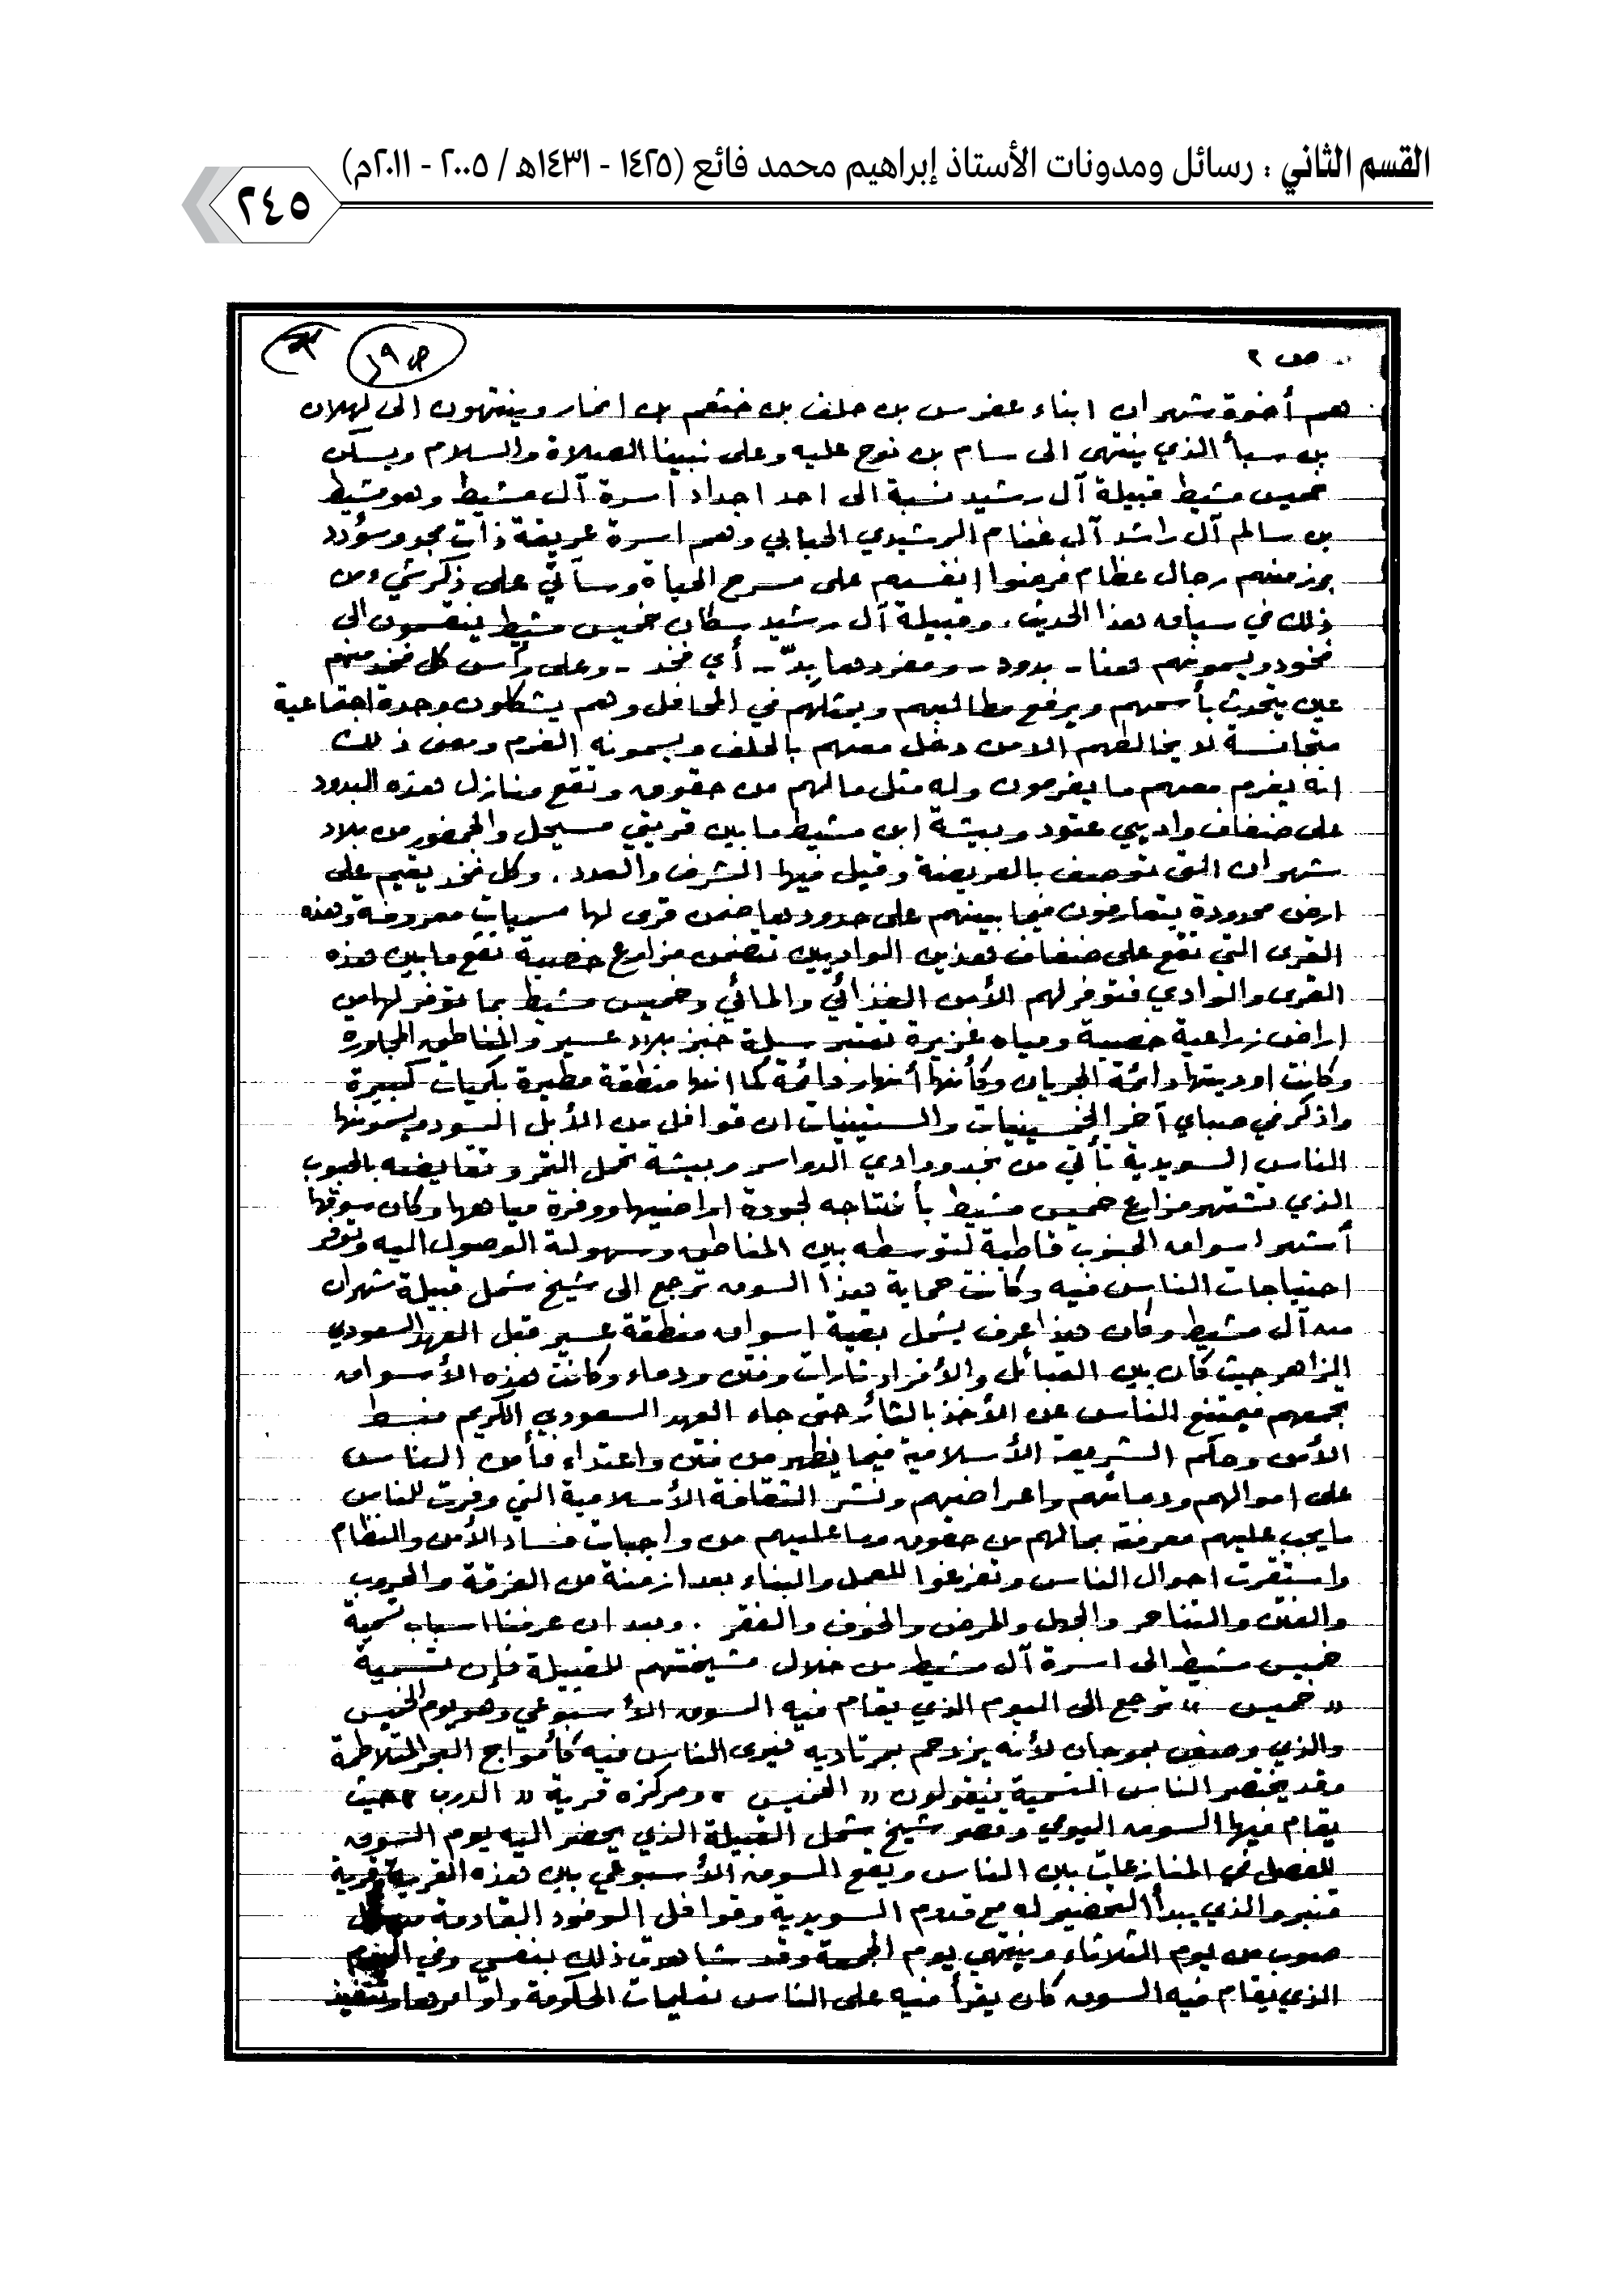 القسم الثاني : رسائل ومدونات الأستاذ إبراهيم محمد فائع (١٤٢٥ - ١٤٣١هـ / ٢٠٠٥ - ٢٠١١م)
٢٤٥
ص ٢
هم أخوة شهران ابناء عفرس بن حلف بن خثعم بن انمار وينتهون الى كهلان
بن سبأ الذي ينتهي الى سام بن نوح عليه وعلى نبينا الصلاة والسلام ويسكن
خميس مشيط قبيلة آل رشيد نسبة الى احد اجداد اسرة آل مشيط وهو مشيط
بن سالم آل راشد آل غنام الرشيدي الحبابي وهم اسرة عريقة ذات مجد وسؤدد
برز منهم رجال عظام فرضوا انفسهم على مسرح الحياة وسآتي على ذكر شيء من
ذلك في سياق هذا الحديث. وقبيلة آل رشيد سكان خميس مشيط ينقسمون الى
فخود ويسمونهم هنا - بدود - ومفردها بِدّ - أي فخذ - وعلى رأس كل فخذ منهم
عين يتحدث بأسمهم ويرفع مطالبهم ويمثلهم في المحافل وهم يشكلون وحدة اجتماعية
متجانسة لا يخالطهم الا من دخل معهم بالحلف ويسمونه الغرم ومعنى ذلك
انه يغرم معهم ما يغرمون وله مثل مالهم من حقوق وتقع منازل هذه البدود
على ضفاف واديي عتود وبيشة ابن مشيط ما بين قريتي مسيحل والخمضور من بلاد
شهران التي توصف بالعريضة وقيل فيها الشرف والعدد. وكل فخذ يقيم على
ارض محدودة يتعارفون فيما بينهم على حدودها ضمن قرى لها مسميات معروفة وهذه
القرى التي تقع على ضفاف هذين الواديين تتضمن مزارع خصبة تقع ما بين هذه
القرى والوادي فتوفر لهم الأمن الغذائي والمائي وخميس مشيط بما توفر لها من
اراض زراعية خصبة ومياه غزيرة تعتبر سلة خبز بلاد عسير والمناطق المجاورة
وكانت اوديتها دائمة الجريان وكأنها أنهار دائمة كما انها منطقة مطيرة بكميات كبيرة
واذكر في صباي آخر الخمسينيات والستينيات ان قوافل من الأبل السود ويسمونها
الناس السويدية تأتي من نجد ووادي الدواسر وبيشة تحمل التمر وتقايضه بالحبوب
الذي تشتهر مزارع خميس مشيط بأنتاجه لجودة اراضيها ووفرة مياهها وكان سوقها
أشهر اسواق الجنوب قاطبة لتوسطه بين المناطق وسهولة الوصول اليه وتوفر
احتياجات الناس فيه وكانت حماية هذا السوق ترجع الى شيخ شمل قبيلة شهران
من آل مشيط وكان هذا عرف يشمل بقية اسواق منطقة عسير قبل العهد السعودي
الزاهر حيث كان بين القبائل والأفراد ثارات وفتن ودماء وكانت هذه الأسواق
تجمعهم فيمتنع الناس عن الأخذ بالثأر حتى جاء العهد السعودي الكريم فبسط
الأمن وحكم الشريعة الأسلامية فيما يظهر من فتن واعتداء فأمن الناس
على اموالهم ودمائهم واعراضهم ونشر الثقافة الأسلامية التي وفرت للناس
ما يجب عليهم معرفته بمالهم من حقوق وما عليهم من واجبات فساد الأمن والنظام
واستقرت احوال الناس وتفرغوا للعمل والبناء بعد ازمنة من الفرقة والحروب
والفتن والتناحر والجهل والمرض والخوف والفقر . وبعد ان عرفنا اسباب تسمية
خميس مشيط الى اسرة آل مشيط من خلال مشيختهم للقبيلة فإن تسمية
" خميس " ترجع الى اليوم الذي يقام فيه السوق الأسبوعي وهو يوم الخميس
والذي وصف بموجان لأنه يزدحم بمرتاديه فيرى الناس فيه كأمواج البحر المتلاطمة
وقد يختصر الناس التسمية فيقولون " الخميس " ومركزه قرية " الدرب " حيث
يقام فيها السوق اليومي وقصر شيخ شمل القبيلة الذي يحضر اليه يوم السوق
للفصل في المنازعات بين الناس ويقع السوق الأسبوعي بين هذه القرية وقرية
قنبر والذي يبدأ التحضير له مع قدوم السويدية وقوافل الوفود القادمة من كل
صوب من يوم الثلاثاء وينتهي يوم الجمعة وقد شاهدت ذلك بنفسي وفي اليوم
الذي يقام فيه السوق كان يقرأ فيه على الناس تعليمات الحكومة وأوامرها وتنفيذ